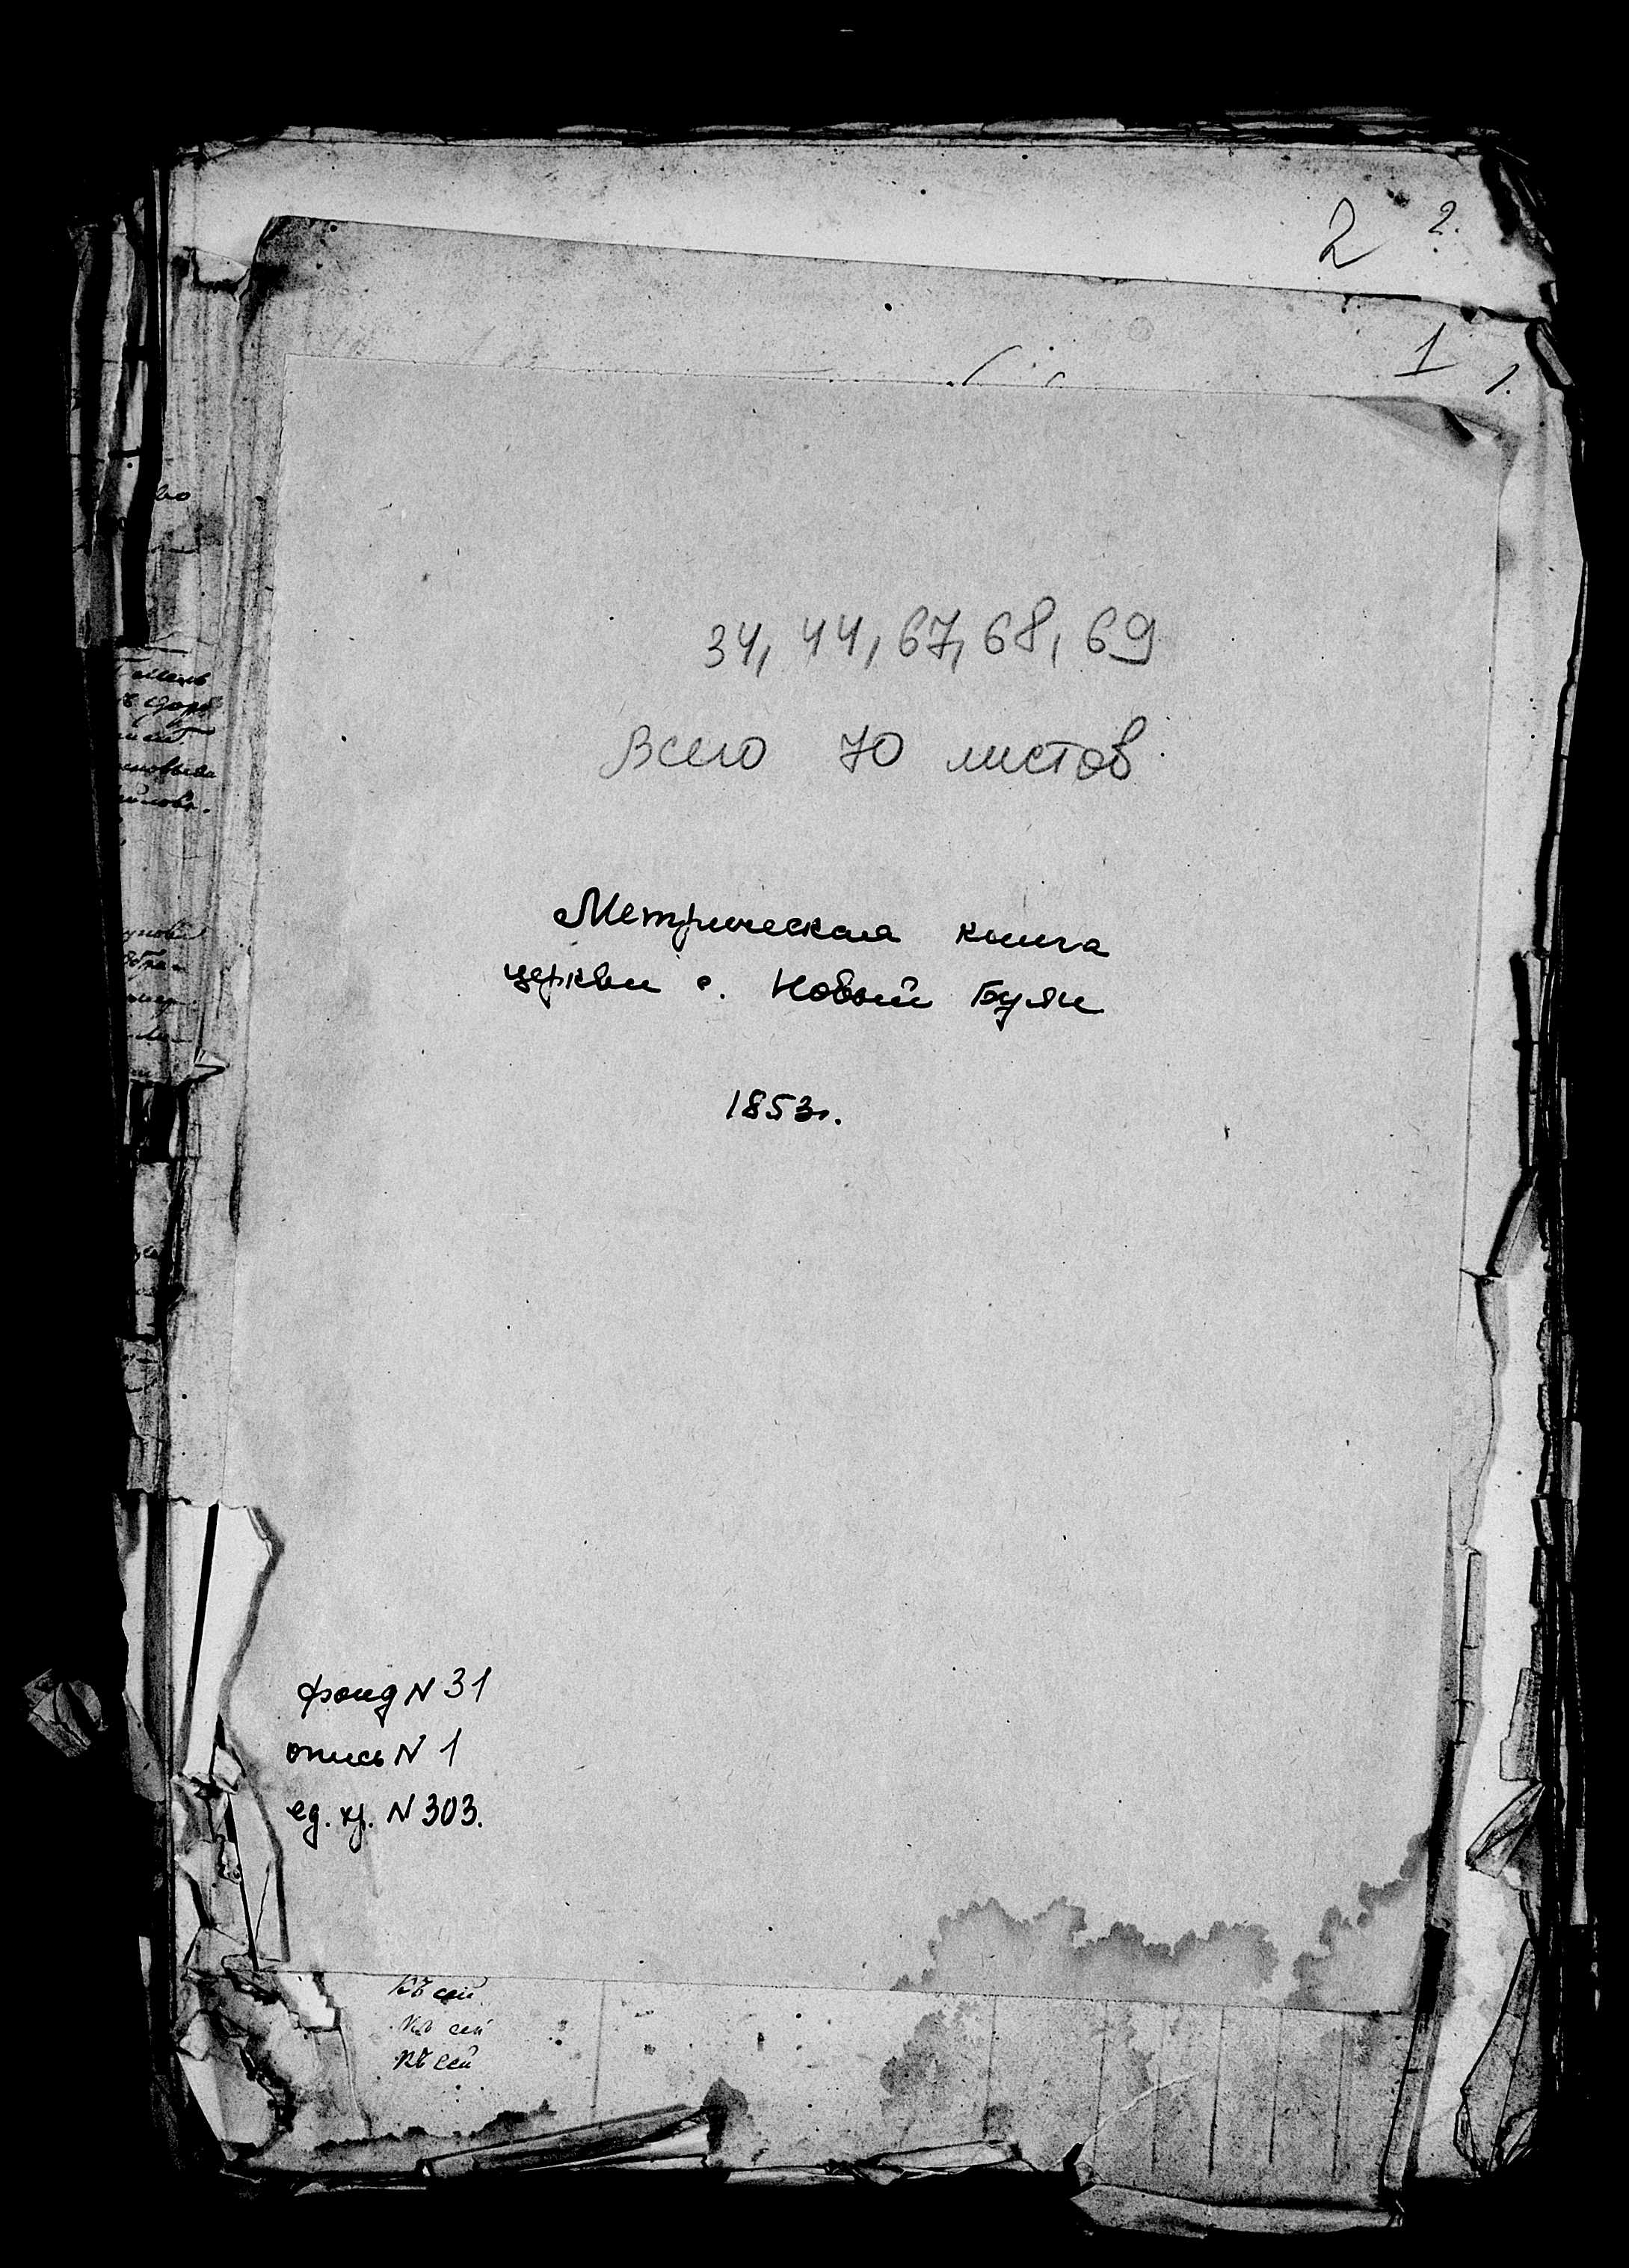 2 2.
1 1.
34, 44, 67, 68, 69
Всего 70 листов
Метрическая книга
церкви с. Новый Буян
1853г.
фонд N 31
опись N 1
ед. хр. N 303.
Къ сей
Къ сей
Къ сей